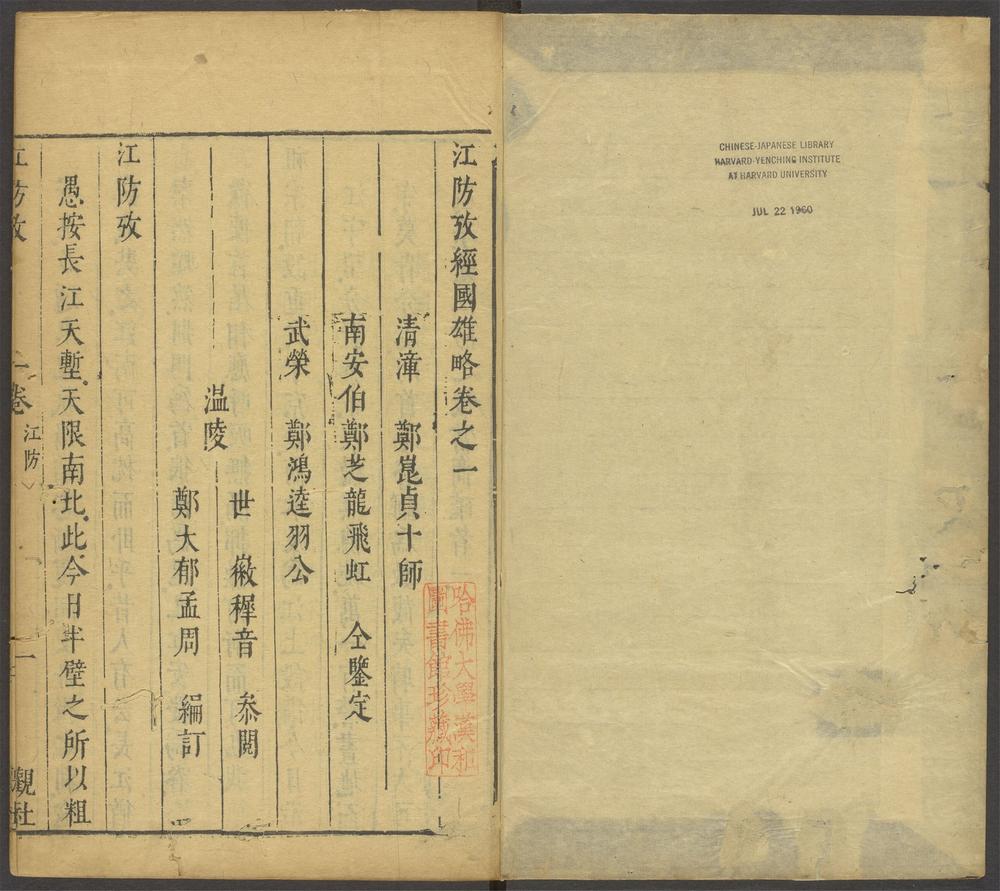 CHINESE-JAPANESE LIBRARY
HARVARD-YENCHING INSTITUTE
AT HARVARD UNIVERSITY
JUL 22 1960
江防攷經國雄略卷之一
清漳 鄭崑貞十師
南安伯鄭芝龍飛虹 仝鑒定
武榮 鄭鴻逵羽公
温陵
世徽穉音 叅閱
鄭大郁孟周 編訂
江防攷
愚按長江天塹天限南北此今日半壁之所以粗
江防攷 卷 江防 一 觀社
哈佛大學漢和
圖書館珍藏印